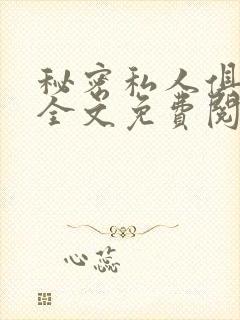 秘密私人俱
全文免费閱
心蕊